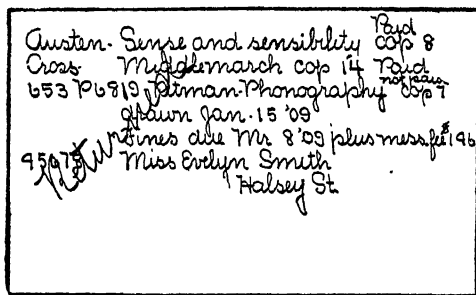 Paid
Austen. Sense and sensibility cop 8
Cross. Middlemarch cop 14 Paid
not paid
653 P6819 Pitman. Phonography cop 7
drawn Jan. 15 '09
Fines due Mr 8 '09 plus mess. fee $1.46
45675 Miss Evelyn Smith
Halsey St.
Returned